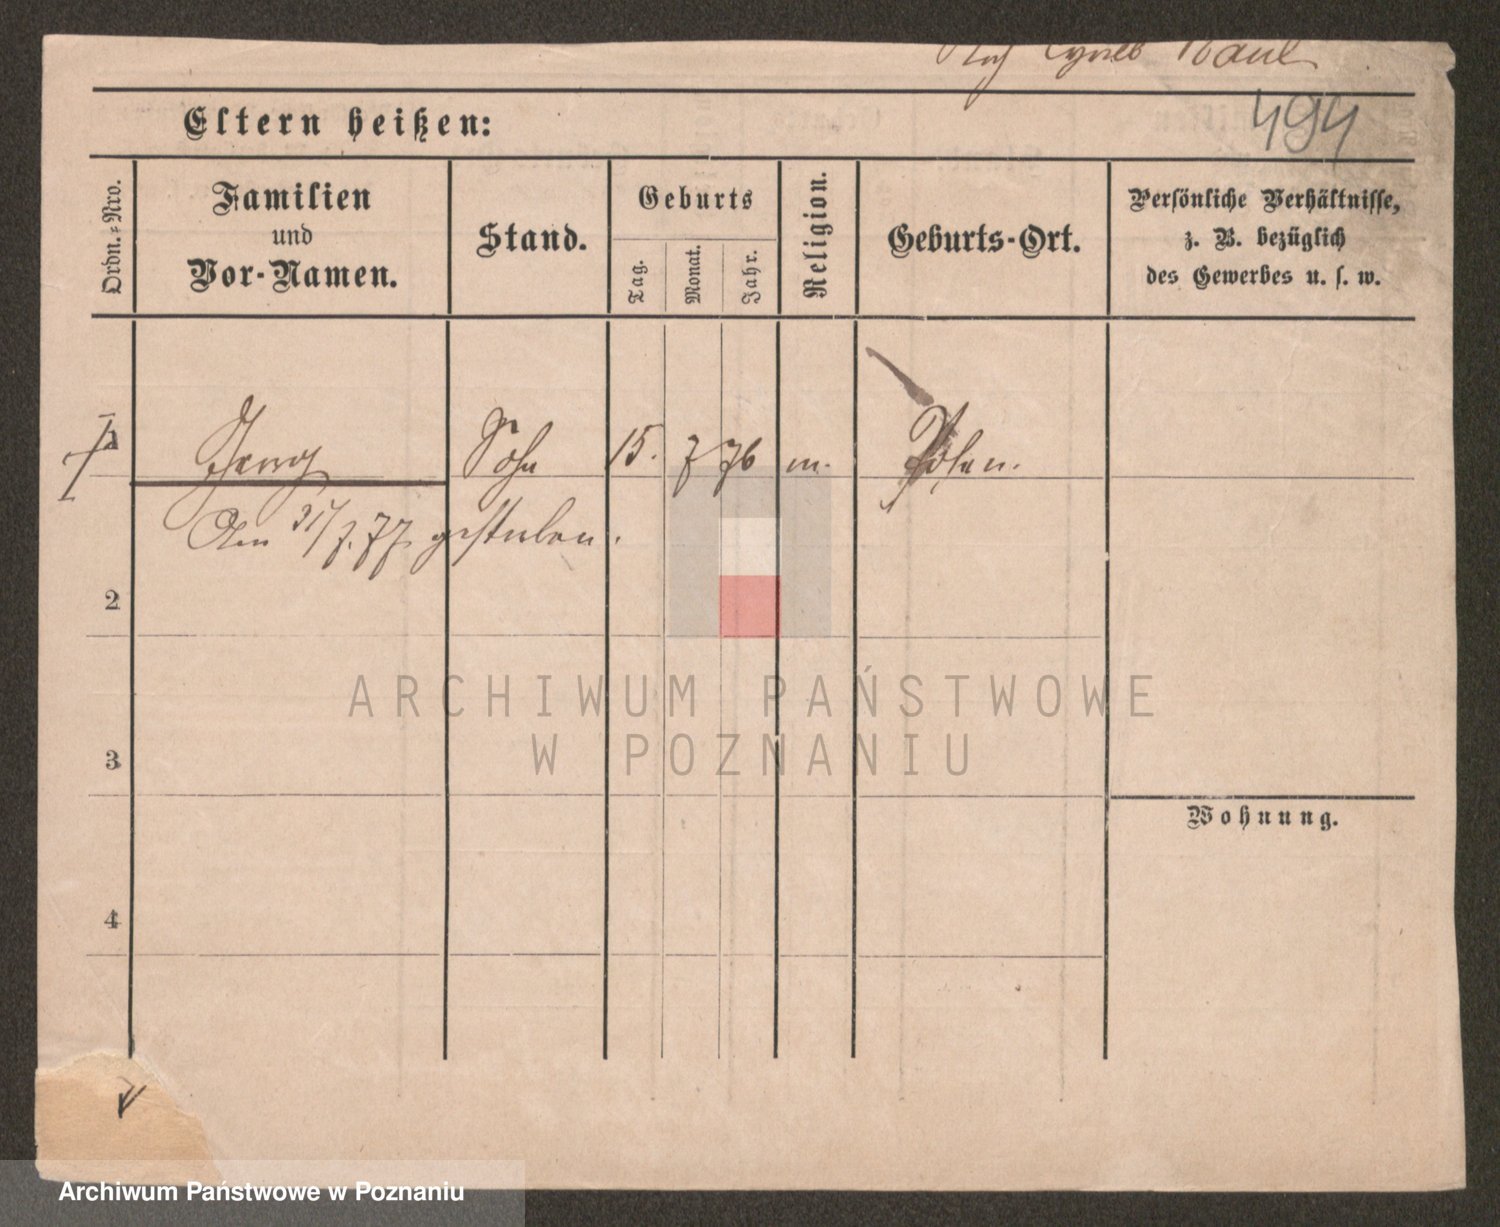 494
Eltern heißen:
Ordn.-Nro.
Familien
und
Vor-Namen.
Stand.
Geburts
Tag.
Monat.
Jahr.
Religion.
Geburts-Ort.
Persönliche Verhältnisse,
z. B. bezüglich
des Gewerbes u. s. w.
1 Georg Sohn 15. 7 76 m. Posen.
Am 31/7. 77 gestorben.
2
ARCHIWUM PAŃSTWOWE
W POZNANIU
3
Wohnung.
4
Archiwum Państwowe w Poznaniu